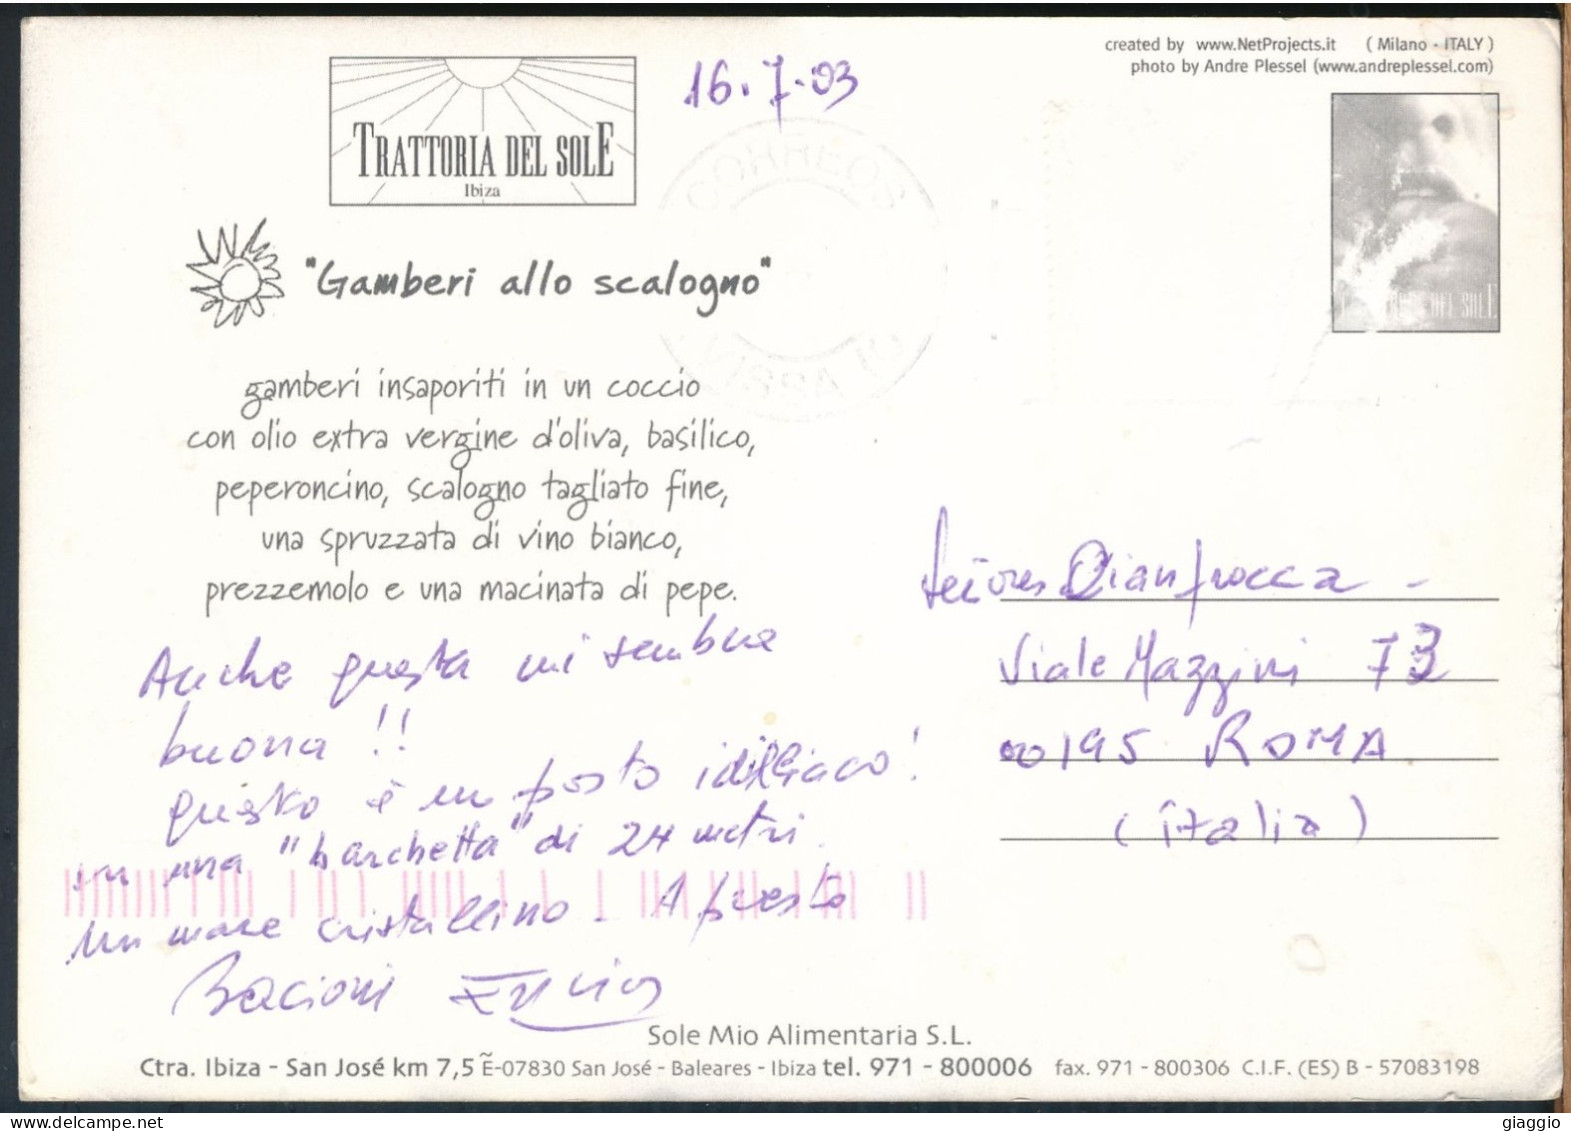 created by www.NetProjects.it ( Milano - ITALY )
photo by Andre Plessel (www.andreplessel.com)
16.7.03
TRATTORIA DEL SOLE
Ibiza
CORREOS
"Gamberi allo scalogno"
DEL SOLE
gamberi insaporiti in un coccio
con olio extra vergine d'oliva, basilico,
peperoncino, scalogno tagliato fine,
una spruzzata di vino bianco,
prezzemolo e una macinata di pepe.
Anche questa mi sembra
buona !!
questo è un posto idilliaco!
in una "barchetta" di 24 metri.
un mare cristallino - A presto
Bacioni
Gianfrocca -
Viale Mazzini 73
00195 ROMA
(italia)
Sole Mio Alimentaria S.L.
Ctra. Ibiza - San José km 7,5 E-07830 San José - Baleares - Ibiza tel. 971 - 800006 fax. 971 - 800306 C.I.F. (ES) B - 57083198
giaggio